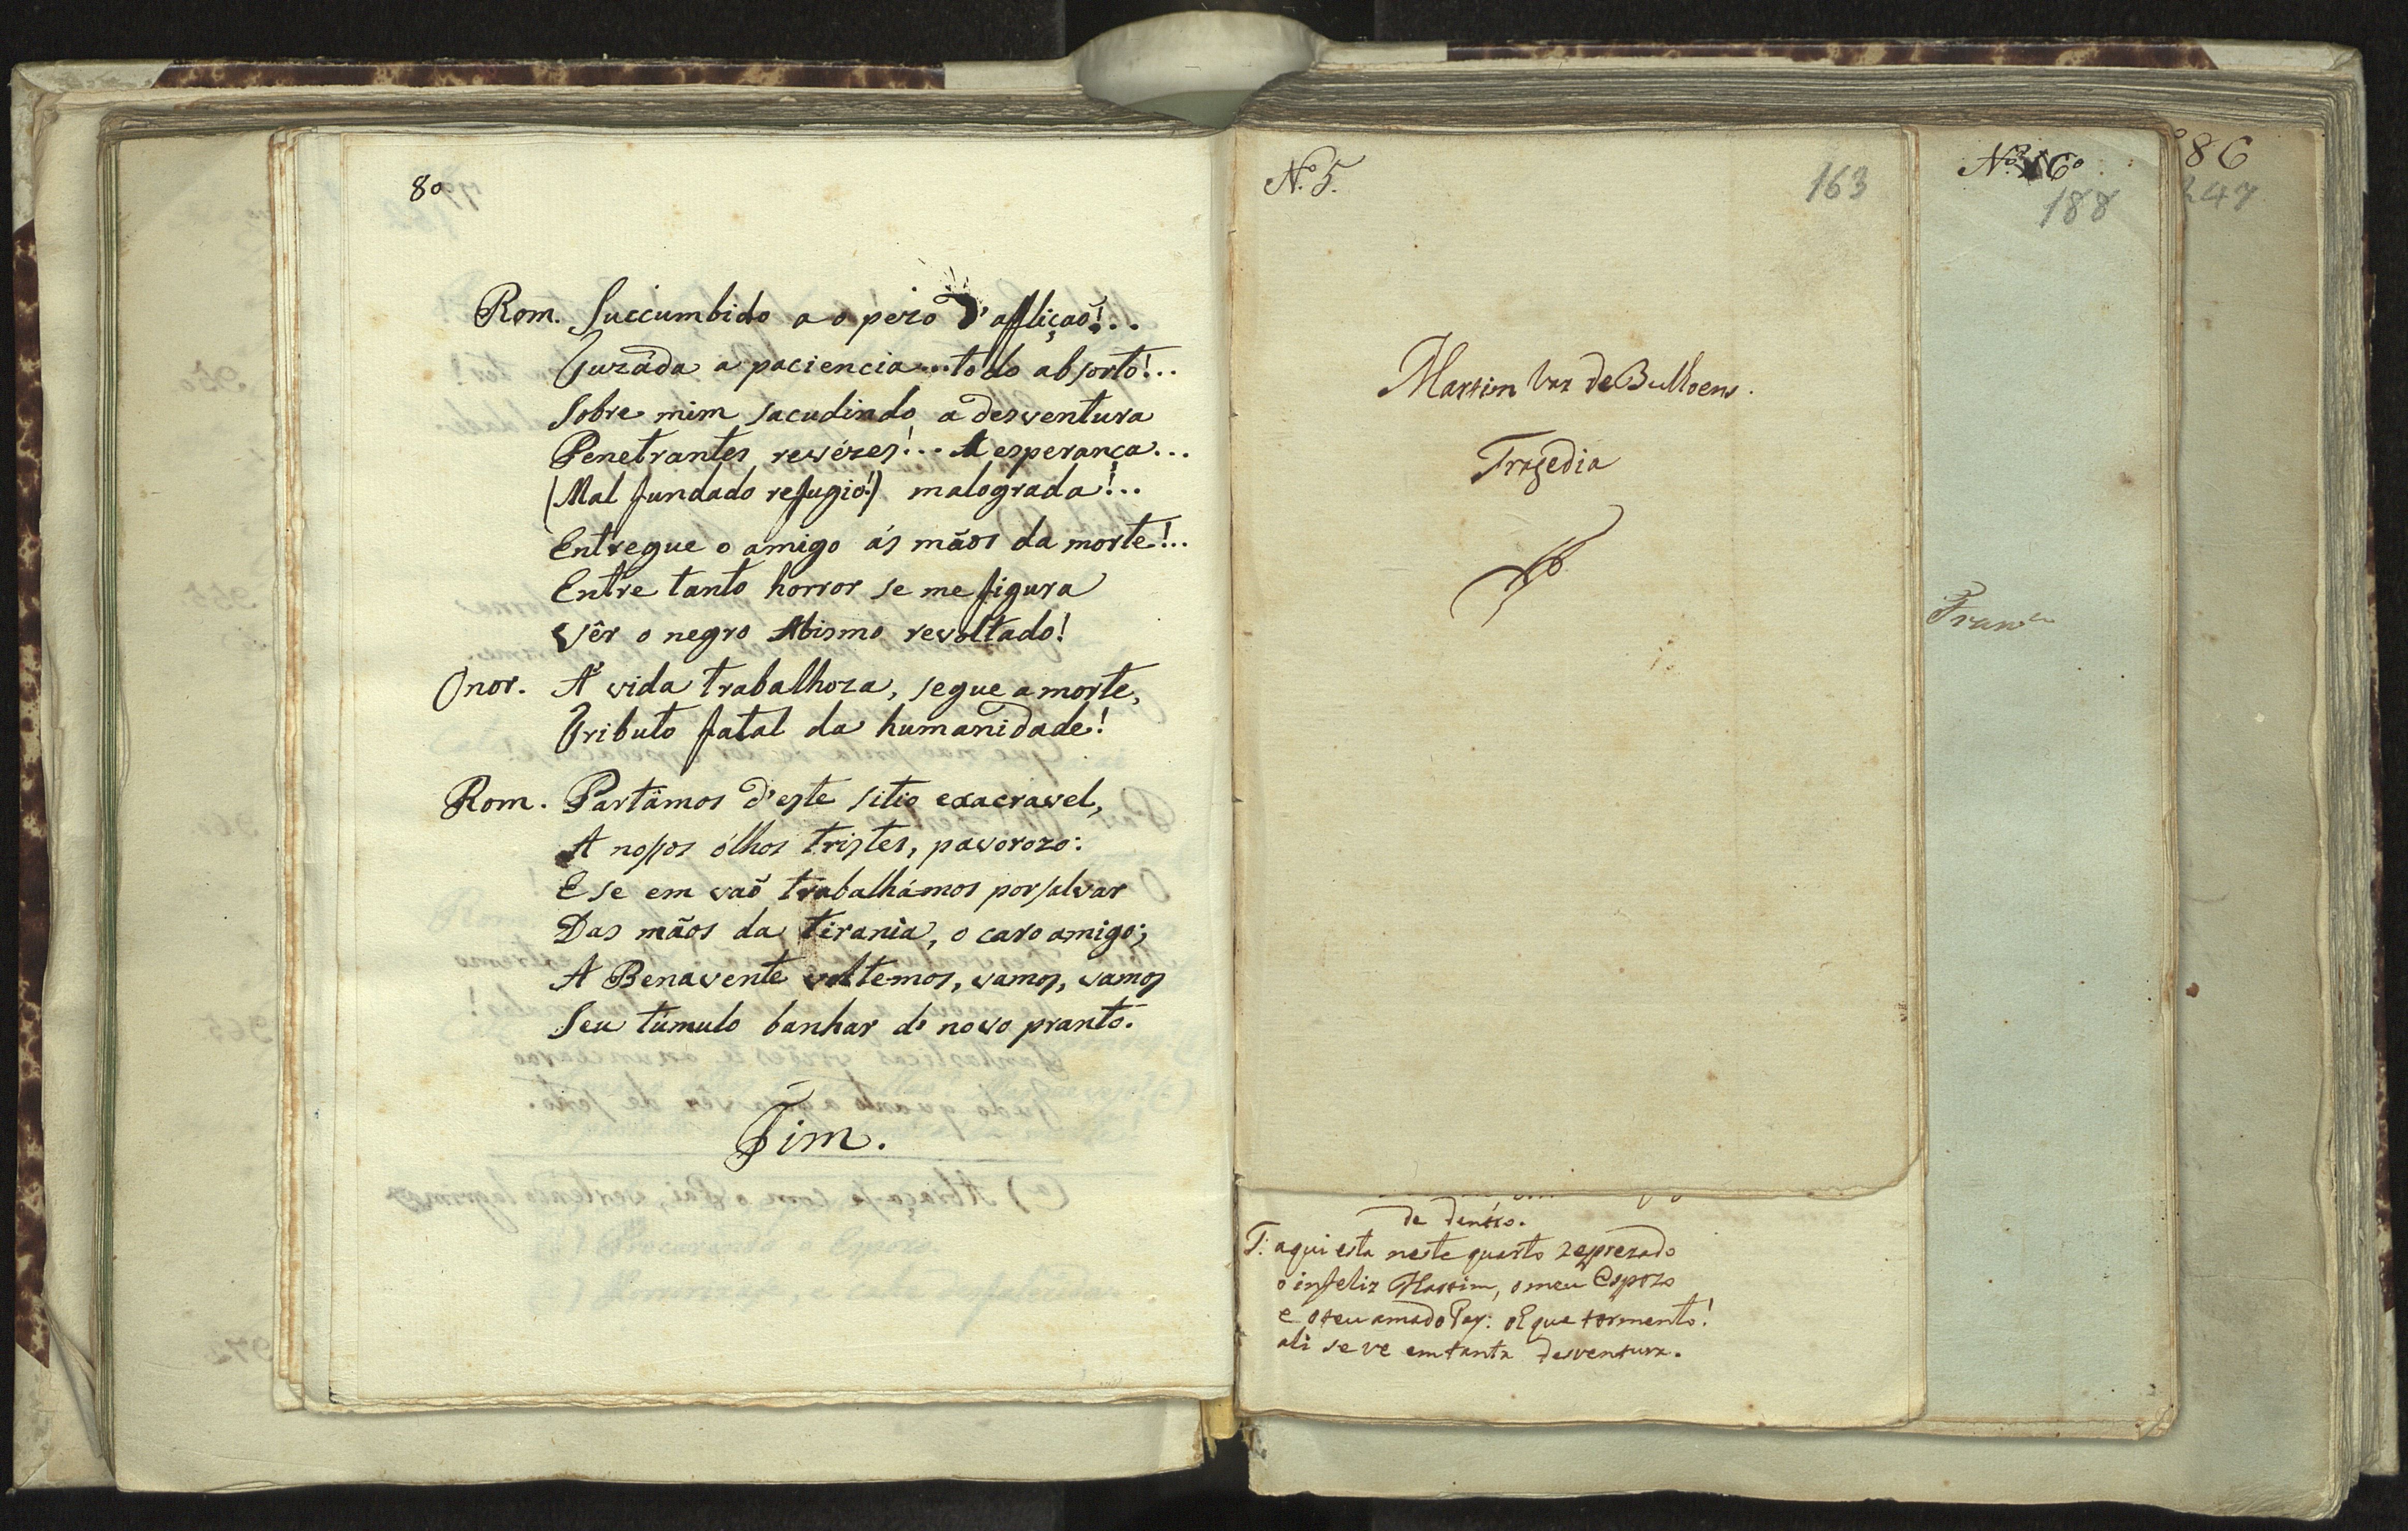 80
Rom. Succumbido a o pezo d'afliçaõ!..
Turáda a paciencia... todo absorto!..
Sobre mim sacudindo a desventura
Penetrantes revézes!... A esperança...
(Mal fundado refugio!) malograda!...
Entregue o amigo ás mãos da morte!..
Entre tanto horror se me figura
Vêr o negro Abismo revoltado!
Onor. A' vida trabalhoza, segue a morte,
Tributo fatal da humanidade!
Rom. Partâmos d'este sitio exacravel,
A nossos ólhos tristes, pavorozo:
E se em vaõ trabalhámos por salvar
Das mãos da tirania, o caro amigo;
A Benavente voltemos, vamos, vamos
Seu túmulo banhar de novo pranto.
Fim.
N.º 5.
163
Martim Vaz de Bulhoens.
Tragedia
de dentro.
T. aqui esta neste quarto
o infeliz Martim, o meu Espozo
e o seu amado Pay: que tormento!
ali se ve em tanta desventura.
N.º 6º
188
86
247